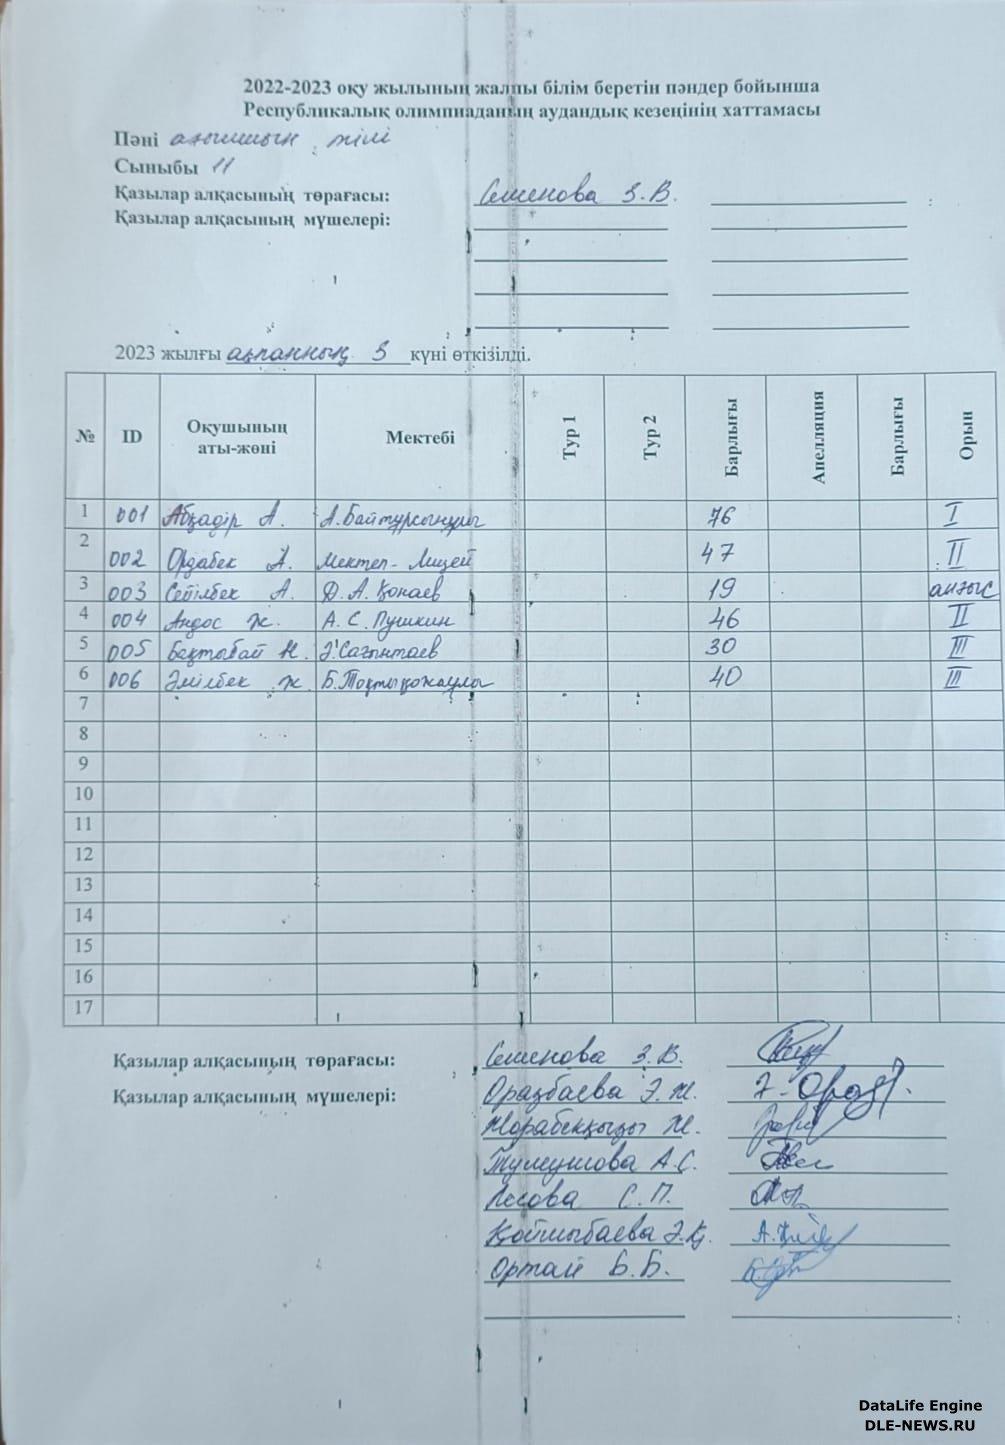 2022-2023 оқу жылының жалпы білім беретін пәндер бойынша
Республикалық олимпиаданың аудандық кезеңінің хаттамасы
Пәні ағылшын тілі
Сыныбы 11
Қазылар алқасының төрағасы: Семенова З.В.
Қазылар алқасының мүшелері:
2023 жылғы ақпанның 3 күні өткізілді.
№ ID Оқушының аты-жөні Мектебі Тур 1 Тур 2 Барлығы Апелляция Барлығы Орын
1 001 Абқадір А. А.Байтұрсынұлы 76 I
2 002 Ордабек А. Мектеп-Лицей 47 II
3 003 Сейілбек А. Д.А.Қонаев 19 алғыс
4 004 Андос Ж. А.С.Пушкин 46 II
5 005 Бақтыбай Н. Ә.Сағынтаев 30 III
6 006 Әлілбек Ж. Б.Тоқтықожаұлы 40 III
7
8
9
10
11
12
13
14
15
16
17
Қазылар алқасының төрағасы: Семенова З.В.
Қазылар алқасының мүшелері: Оразбаева Э.Ж.
Жорабекқызы Ж.
А.С.
С.П.
Қойшыбаева Э.Қ.
Ортай Б.Б.
DataLife Engine
DLE-NEWS.RU